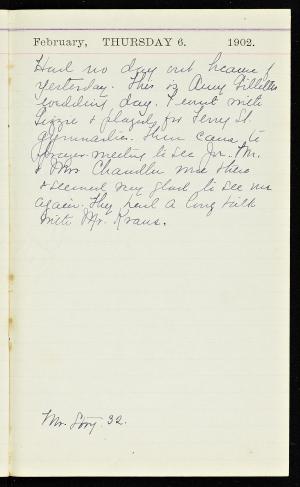 February, THURSDAY 6. 1902.
Had no day out because of
yesterday. This is Amy
wedding day. I went with
Lizzie & played for Ferry St
gymnastics. Then came to
prayer meeting to see Jon. Mr.
& Mrs Chandler were there
& seemed very glad to see me
again. They had a long talk
with Mr. Kraus.
Mr. 32.